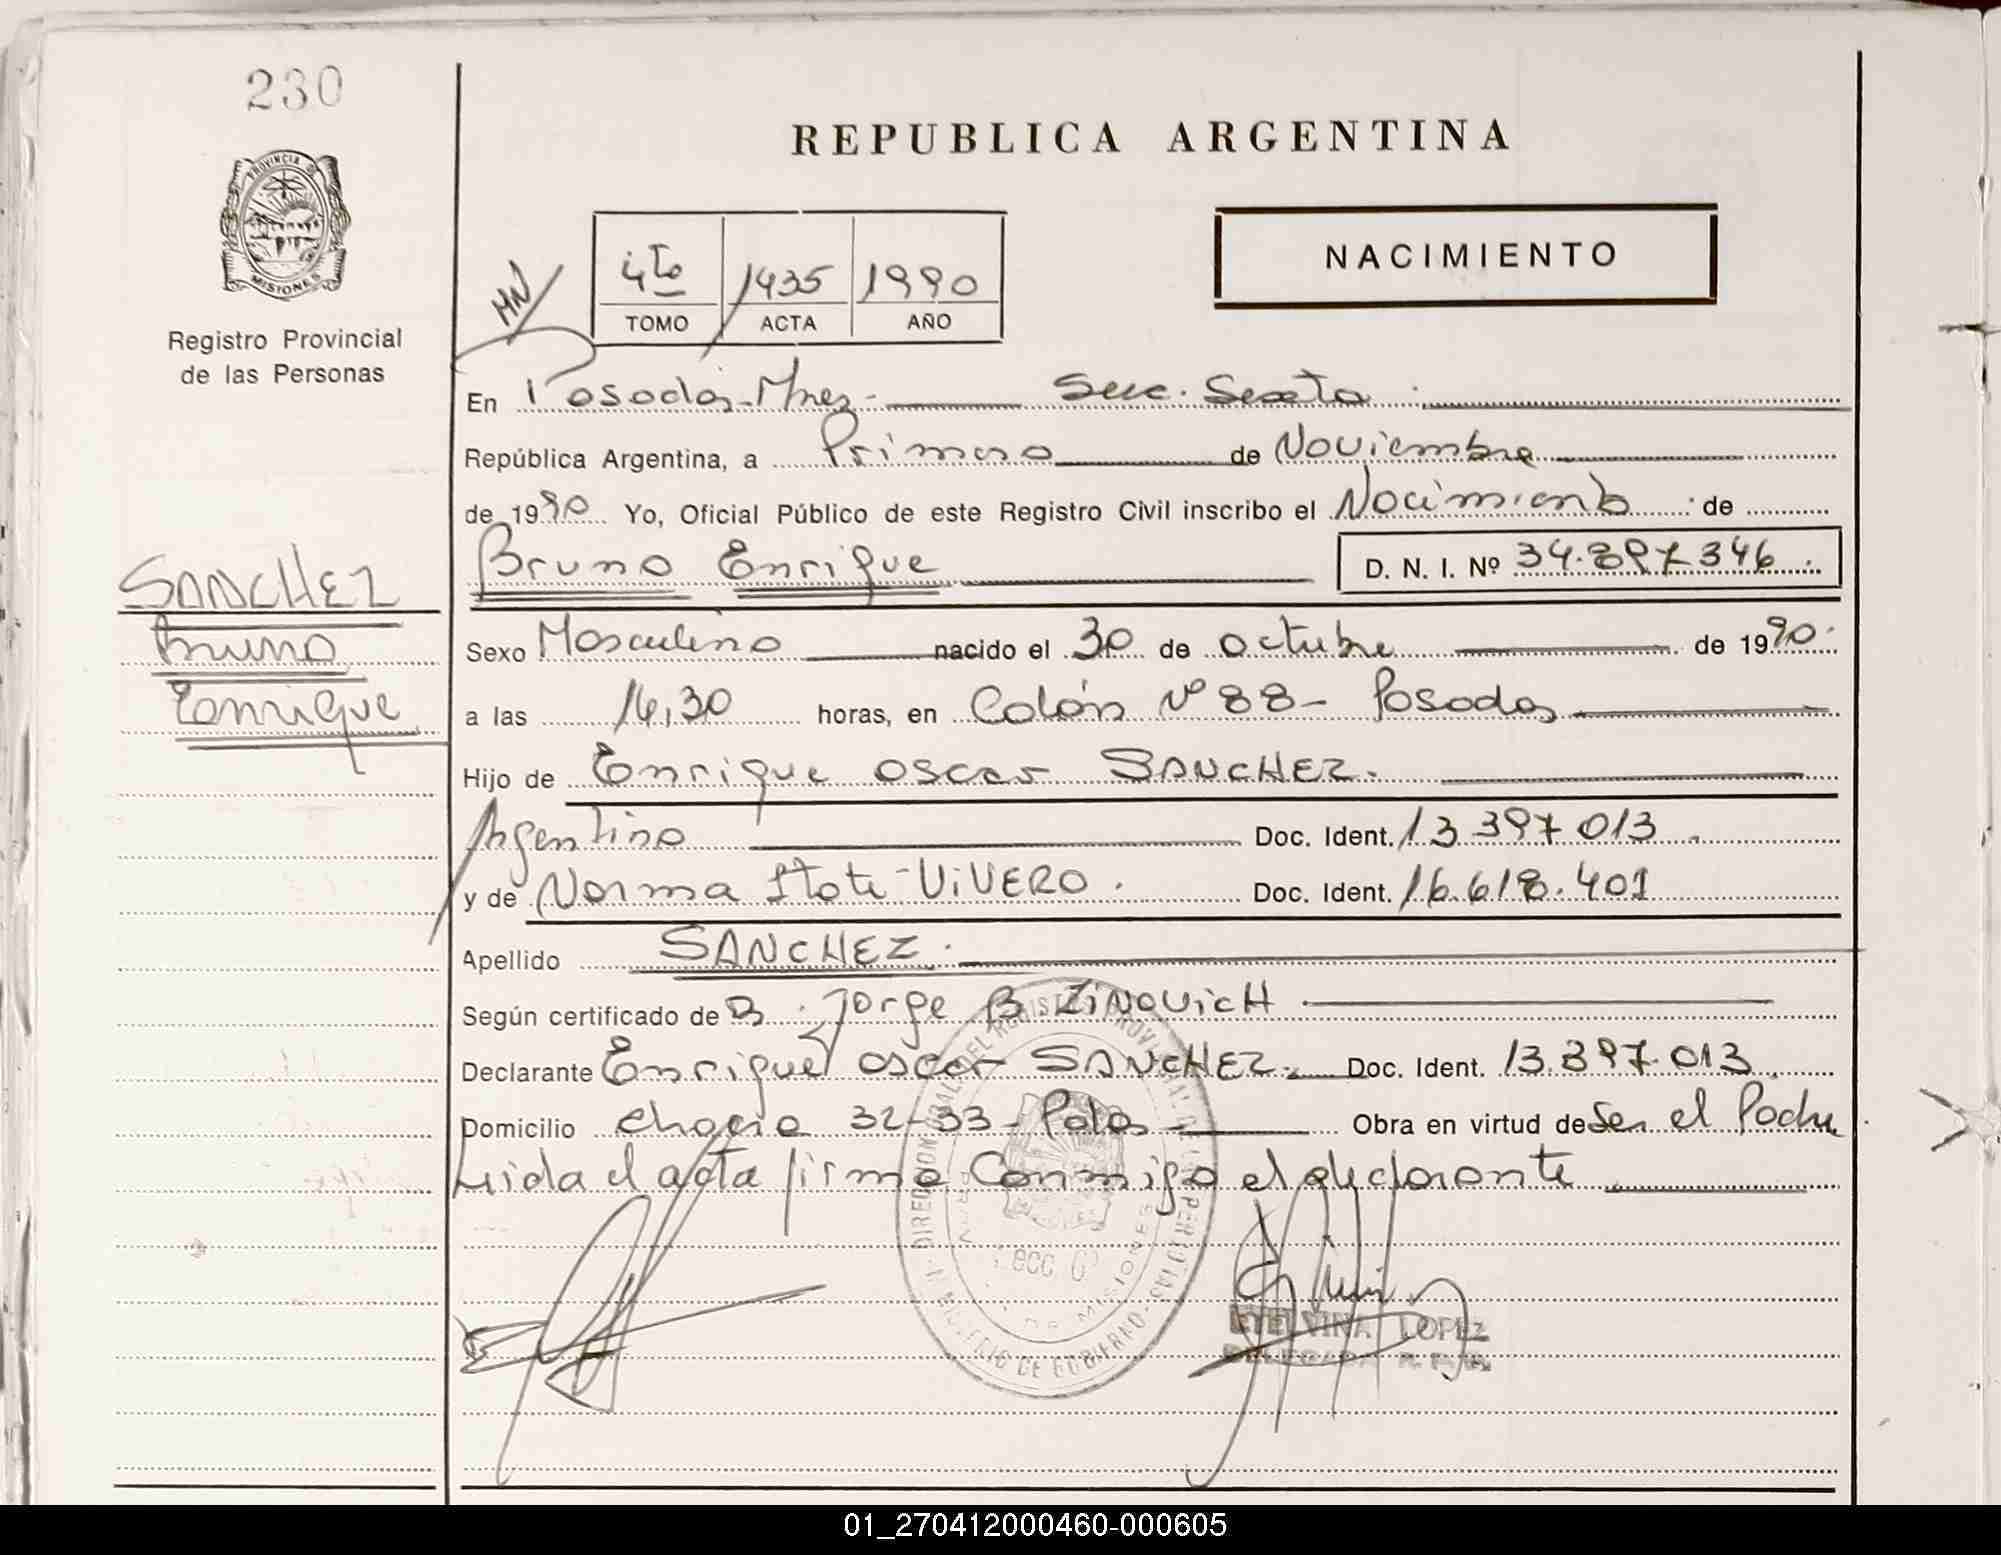 230
PROVINCIA DE
MISIONES
Registro Provincial
de las Personas
REPUBLICA ARGENTINA
NACIMIENTO
4to 1435 1990
TOMO ACTA AÑO
En Posadas-Mnes- Secc. Sexta
República Argentina, a Primero de Noviembre
de 1990 Yo, Oficial Público de este Registro Civil inscribo el Nacimiento de
Bruno Enrique D. N. I. Nº 34.897346
SANCHEZ
Bruno
Enrique
Sexo Masculino nacido el 30 de octubre de 1990
a las 14,30 horas, en Colón Nº 88- Posadas
Hijo de Enrique Oscar SANCHEZ.
Argentino Doc. Ident. 13.397013
y de Norma VIVERO. Doc. Ident. 16.618.401
Apellido SANCHEZ.
Según certificado de D. Jorge B ZINOVICH
Declarante Enrique Oscar SANCHEZ. Doc. Ident. 13.397.013
Domicilio Chacra 32-33- Pdas Obra en virtud de Ser el Padre
Leida el acta firma Conmigo el declarante
ETELVINA LOPEZ
DELEGADA R. P. P.
01_270412000460-000605